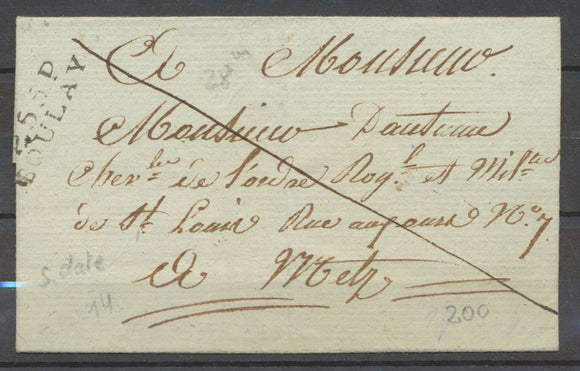 P.55.P
BOULAY
A Monsieur.
Monsieur Dauteme
Cher.lier de l'ordre Roy.l et Mil.taire
de St. Louis Rue aux ours No. 7
A Metz
s. date
14
200